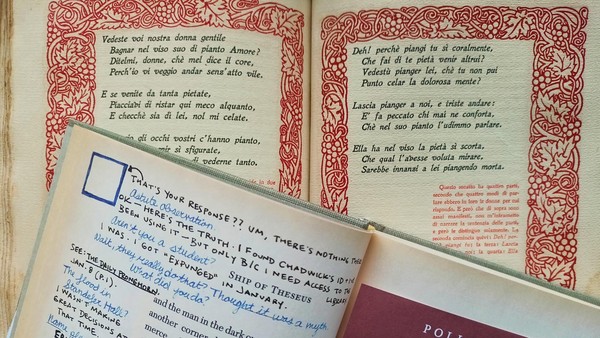 Vedeste voi nostra donna gentile
Bagnar nel viso suo di pianto Amore?
Ditelmi, donne, chè mel dice il core,
Perch'io vi veggio andar senz'atto vile.
E se venite da tanta pietate,
Piacciavi di ristar qui meco alquanto,
E checchè sia di lei, nol mi celate.
gli occhi vostri c'hanno pianto,
sì sfigurate,
di vederne tanto.
Deh! perchè piangi tu sì coralmente,
Che fai di te pietà venir altrui?
Vedestù pianger lei, chè tu non pui
Punto celar la dolorosa mente?
Lascia pianger a noi, e triste andare:
E' fa peccato chi mai ne conforta,
Chè nel suo pianto l'udimmo parlare.
Ella ha nel viso la pietà sì scorta,
Che qual l'avesse voluta mirare,
Sarebbe innanzi a lei piangendo morta.
Questo sonetto ha quattro parti,
secondo che quattro modi di par-
lare ebbero in loro le donne per cui
rispondo. E però che di sopra sono
assai manifesti,
THAT'S YOUR RESPONSE?? UM, THERE'S NOTHING THERE
Astute observation
OK – HERE'S THE TRUTH. I FOUND CHADWICK'S ID +
BEEN USING IT – BUT ONLY B/C I NEED ACCESS TO THE LIBRARY
Aren't you a student?
I WAS. I GOT "EXPUNGED" IN JANUARY.
Wait, they really do that? Thought it was a myth
What did you do?
SHIP OF THESEUS
SEE: THE DAILY PRONGHORN,
JAN. 8 (P.1).
The flood in
Standefer Hall?
I WASN'T MAKING
GREAT DECISIONS AT
THAT TIME.
and the man in the dark
another corner
merce
POLL